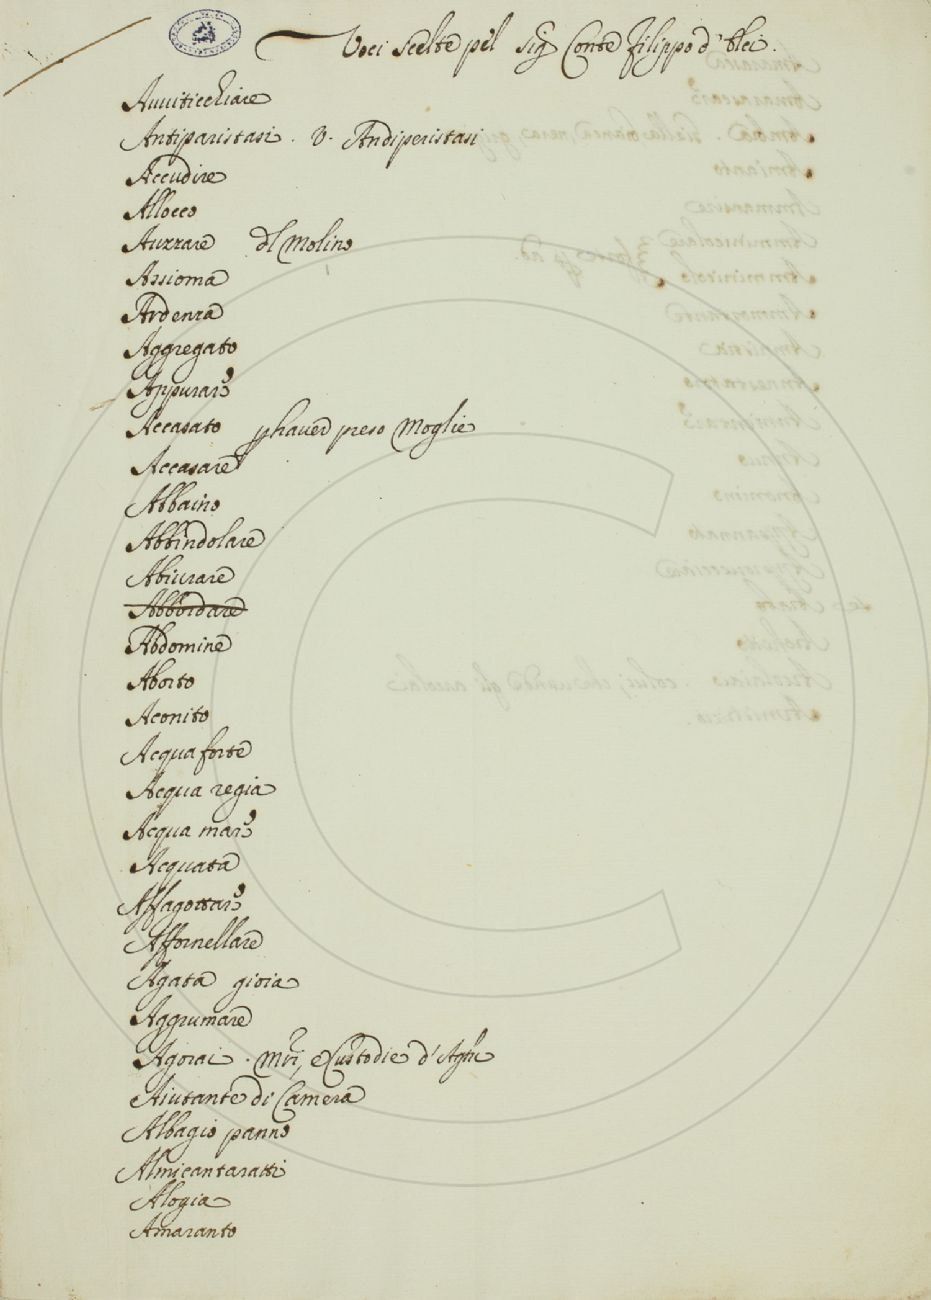 Voci Scelte pel Sig Conte Filippo d'Elci.
Avviticchiare
Antiparistasi. V. Andiperistasi
Accudire
Allocco
Auzzare del Molino
Assioma
Ardenza
Aggregato
Appurare
Accasato p haver preso Moglie
Accasare
Abbaino
Abbindolare
Abiurare
Abbordare
Abdomine
Aborto
Aconito
Acqua forte
Acqua regia
Acqua mare
Acquata
Affagottare
Affornellare
Agata gioia
Aggrumare
Agorai. Mri, e Custodie d'Aghi
Aiutante di Camera
Albagio panno
Almicantaratti
Alogia
Amaranto